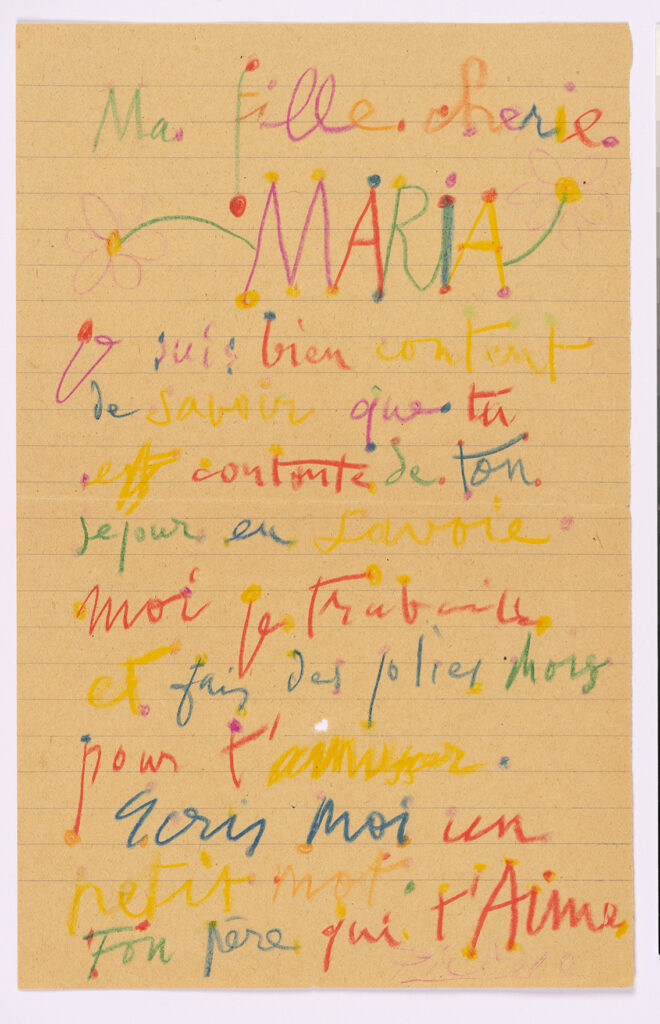 Ma. fille. cherie.
MARIA
Je suis bien content
de savoir que tu
est contente de. ton.
sejour en Savoie
moi je travaille
et fais des jolies
pour t'amusser.
Ecris moi un
petit mot.
Ton père qui t'Aime
Picasso